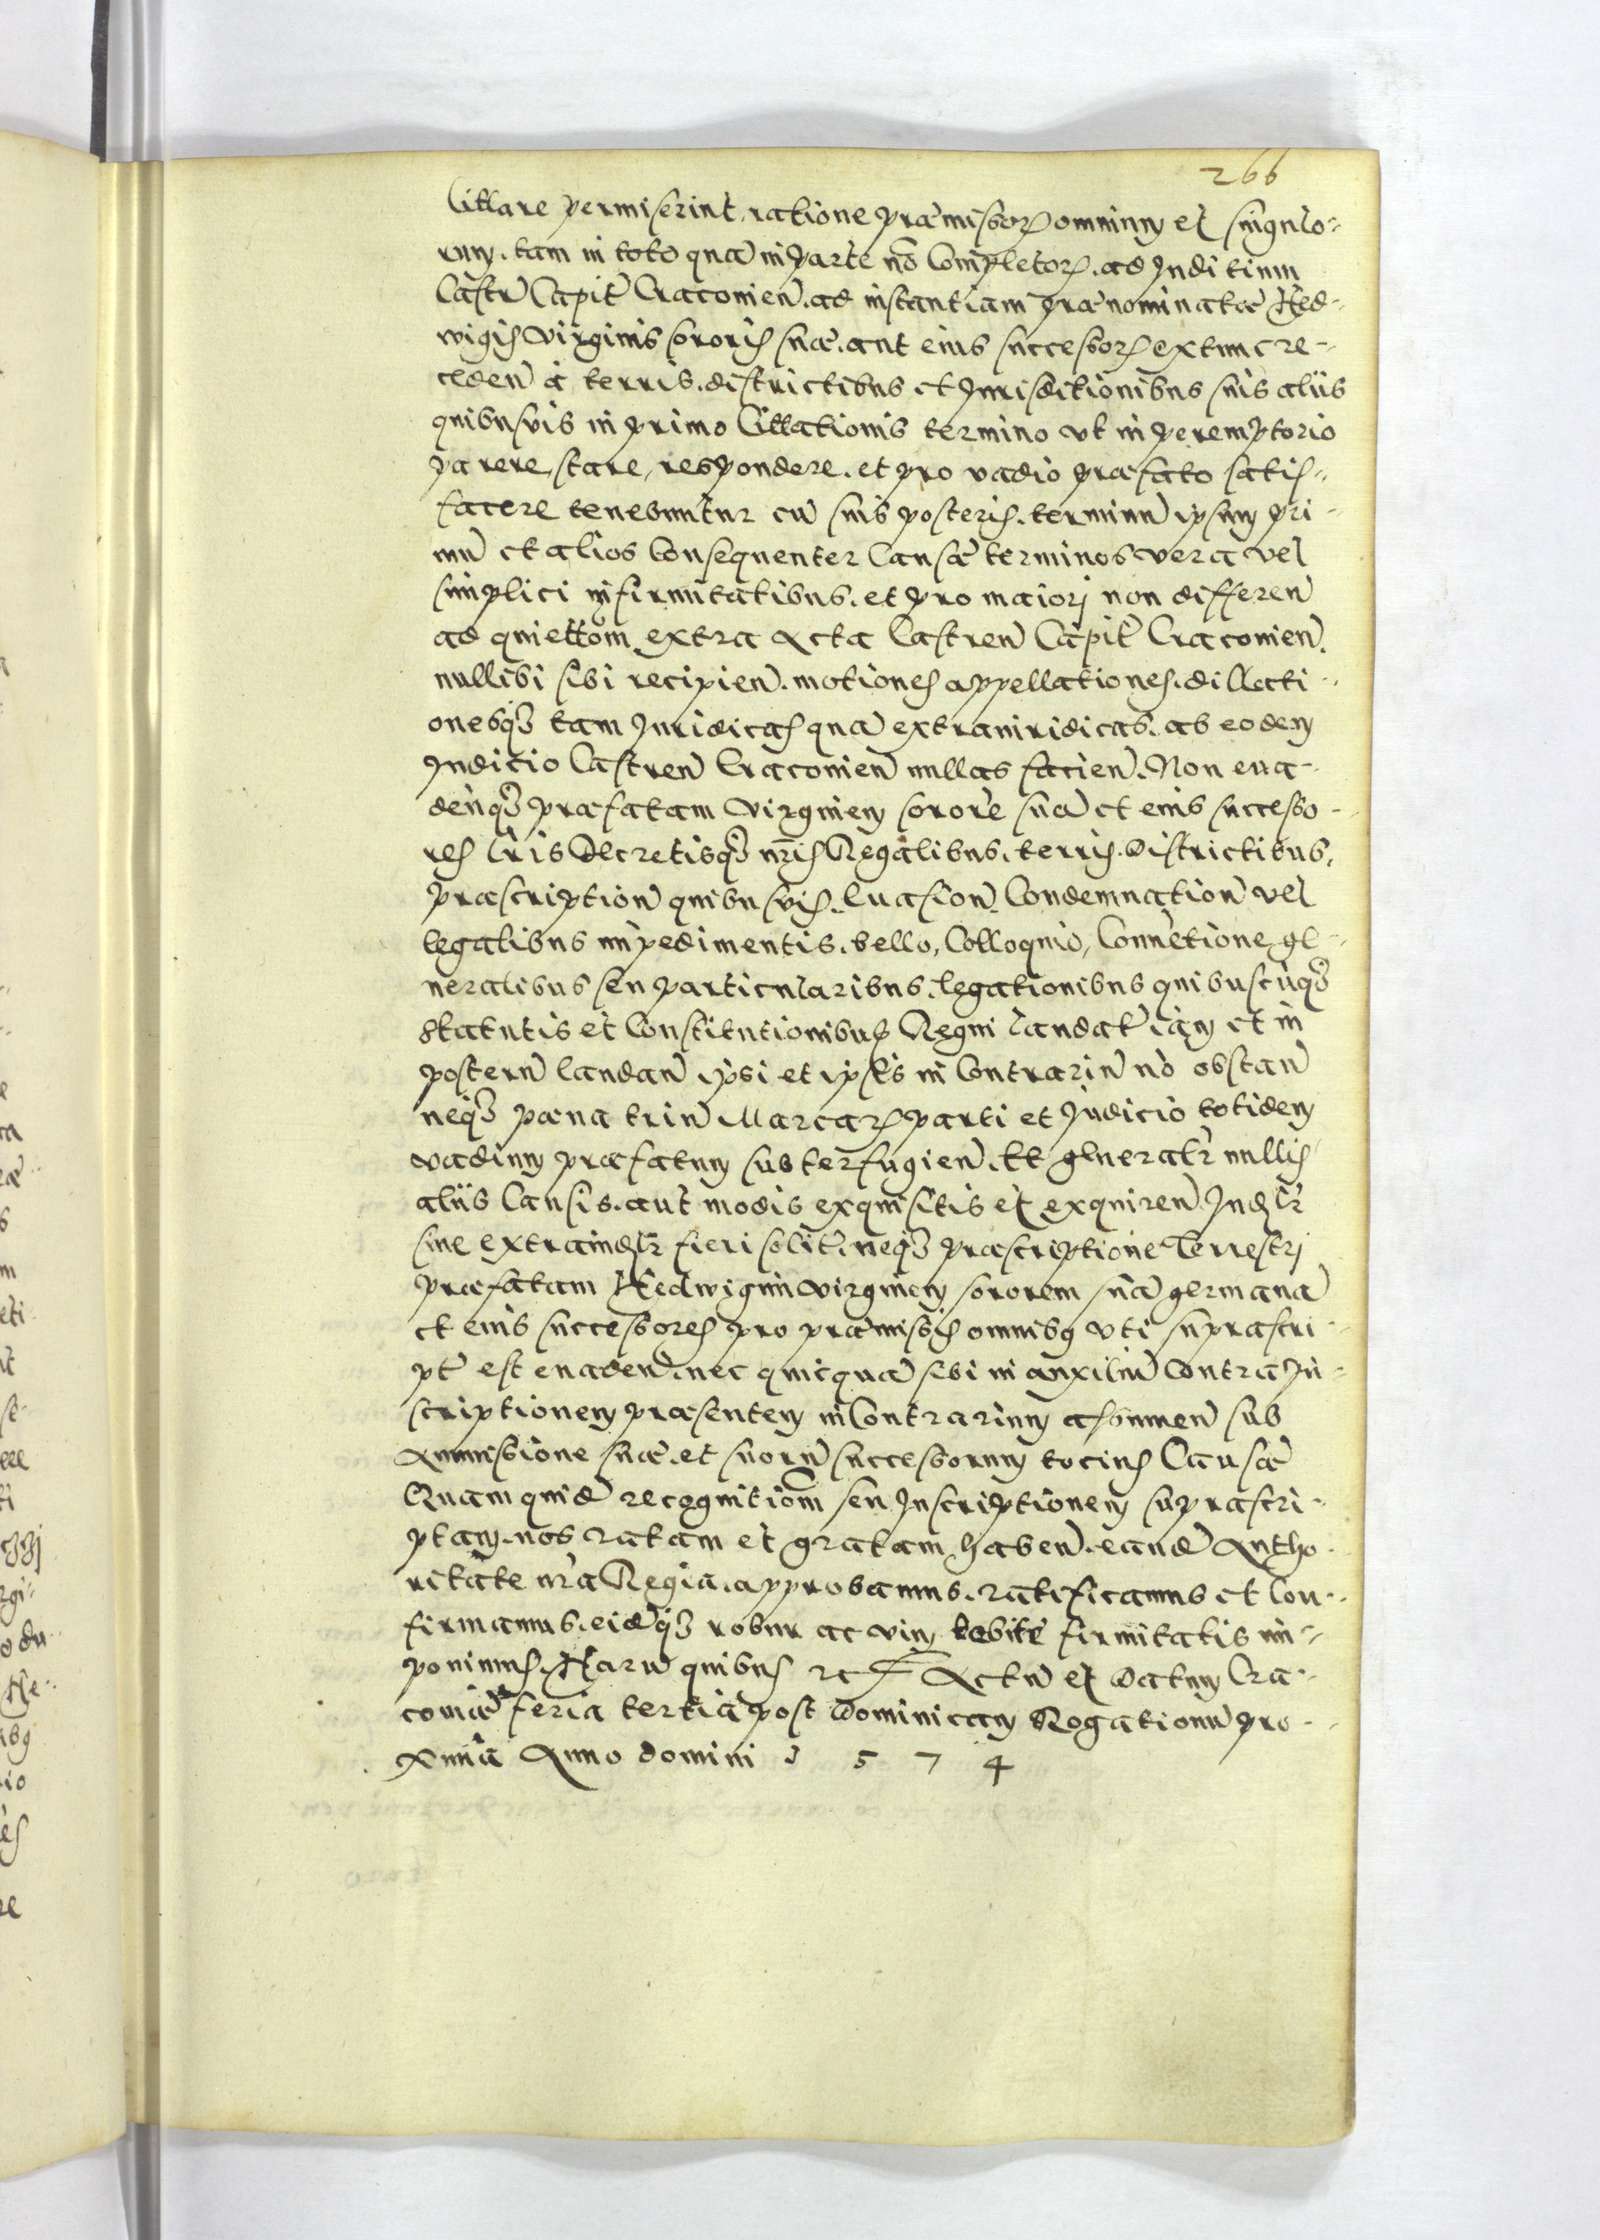 266
Cittare permiserint, ratione præmissor omnium et singulo-
rum. tam in toto quā in parte nō Completor. ad Juditium
Castrē Capitē Cracovien̄. ad instantiam prænominatæ Hed-
wigis Virginis sororis suæ. aut eius successor extunc re-
ceden̄ à terris. districtibus et Jurisditionibus suis aliis
quibusvis in primo Cittationis termino ut in peremptorio
parere, stare, respondere. et pro vadio præfato satis-
facere tenebuntur cū suis posteris. terminū ipsum pri-
mū et alios Consequenter Causæ terminos vera vel
simplici infirmitatibus. et pro maiori non differen̄
ad quiettōm extra Acta Castren̄ Capitē Cracovien̄.
nullibi sibi recipien̄. motiones appellationes. dillecti-
onesq3 tam Juridicas quā extrauiridicas. ab eodem
Juditio Castren̄ Cracovien̄ nullas facien̄. Non eua-
denq3 præfatam Virginem sororē suā et eius successo-
res Lris Decretisq3 nr̄is Regalibus. terris. Districtibus.
præscription̄ quibusvis. Euasion̄. Condemnation̄ vel
legalibus impedimentis. bello, Colloquio, Conuētione, ge-
neralibus seu particularibus. legationibus quibuscūq3
statutis et Constitutionibus Regni laudatē iam et in
posterū laudan̄ ipsi et ipsīs in Contrariū nō obstan̄
neq3 pæna triū Marcar parti et Judicio totidem
vadium præfatum subterfugien̄. Et generatr̄ nullis
aliis Causis. aut modis exquisitis et exquiren̄ Judlr̄
sine extraiudlr̄ fieri solitē. neq3 præscriptione Terrestri
præfatam Hedwigim Virginem sororem suā germanā
et eius successores pro præmissis omnibq uti suprascri-
ptē est euaden̄. nec quicquā sibi in auxiliū Contra In-
scriptionem præsentem in Contrarium assumen̄ sub
Ammissione suæ. et suorū successorum tocius Causæ
Quam quidē recognitiōm seu Inscriptionem suprascri-
ptam. nos ratam et gratam haben̄. eandē Autho-
ritate nr̄a Regia. approbamus. ratificamus et Con-
firmamus. eidēq3 robur ac vim debitē firmitatis im-
ponimus. Harū quibus rc Actū et Datum Cra-
coviæ feria tertia post Dominicam Rogationū pro-
ximā Anno domini 1 5 7 4